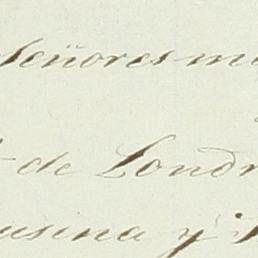 Señores m
de Londr
usina y